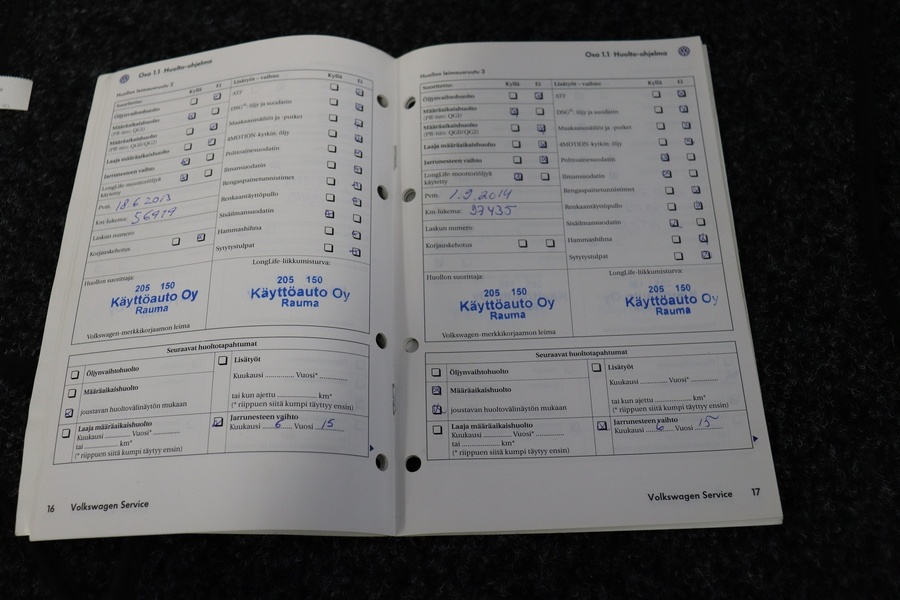 Osa 1.1 Huolto-ohjelma
Huollon leimausruutu 2
Suoritettu:
Kyllä
Ei
Öljynvaihtohuolto
Määräaikaishuolto
(PR-nro: QG1)
Määräaikaishuolto
(PR-nro: QG0/QG2)
Laaja määräaikaishuolto
Jarrunesteen vaihto
LongLife-moottoriöljyä
käytetty
Pvm. 18.6 2013
Km-lukema: 56979
Laskun numero
Korjauskehotus
Lisätyöt - vaihto:
Kyllä
Ei
ATF
DSG®: öljy ja suodatin
Maakaasusäiliön ja -putket
4MOTION-kytkin, öljy
Polttoainesuodatin
Ilmansuodatin
Rengaspainetunnistimet
Renkaantäyttöpullo
Sisäilmansuodatin
Hammashihna
Sytytystulpat
Huollon suorittaja:
205 150
Käyttöauto Oy
Rauma
Volkswagen-merkkikorjaamon leima
LongLife-liikkumisturva:
205 150
Käyttöauto Oy
Rauma
Seuraavat huoltotapahtumat
Öljynvaihtohuolto
Määräaikaishuolto
joustavan huoltovälinäytön mukaan
Laaja määräaikaishuolto
Kuukausi ............ Vuosi* ............
tai ............ km*
(* riippuen siitä kumpi täytyy ensin)
Lisätyöt
Kuukausi ............ Vuosi* ............
tai kun ajettu ............ km*
(* riippuen siitä kumpi täytyy ensin)
Jarrunesteen vaihto
Kuukausi 6 Vuosi 15
16 Volkswagen Service
Osa 1.1 Huolto-ohjelma
Huollon leimausruutu 3
Suoritettu:
Kyllä
Ei
Öljynvaihtohuolto
Määräaikaishuolto
(PR-nro: QG1)
Määräaikaishuolto
(PR-nro: QG0/QG2)
Laaja määräaikaishuolto
Jarrunesteen vaihto
LongLife-moottoriöljyä
käytetty
Pvm. 1.9.2014
Km-lukema: 97435
Laskun numero
Korjauskehotus
Lisätyöt - vaihto:
Kyllä
Ei
ATF
DSG®: öljy ja suodatin
Maakaasusäiliön ja -putket
4MOTION-kytkin, öljy
Polttoainesuodatin
Ilmansuodatin
Rengaspainetunnistimet
Renkaantäyttöpullo
Sisäilmansuodatin
Hammashihna
Sytytystulpat
Huollon suorittaja:
205 150
Käyttöauto Oy
Rauma
Volkswagen-merkkikorjaamon leima
LongLife-liikkumisturva:
205 150
Käyttöauto Oy
Rauma
Seuraavat huoltotapahtumat
Öljynvaihtohuolto
Määräaikaishuolto
joustavan huoltovälinäytön mukaan
Laaja määräaikaishuolto
Kuukausi ............ Vuosi* ............
tai ............ km*
(* riippuen siitä kumpi täytyy ensin)
Lisätyöt
Kuukausi ............ Vuosi* ............
tai kun ajettu ............ km*
(* riippuen siitä kumpi täytyy ensin)
Jarrunesteen vaihto
Kuukausi 6 Vuosi 15
Volkswagen Service 17